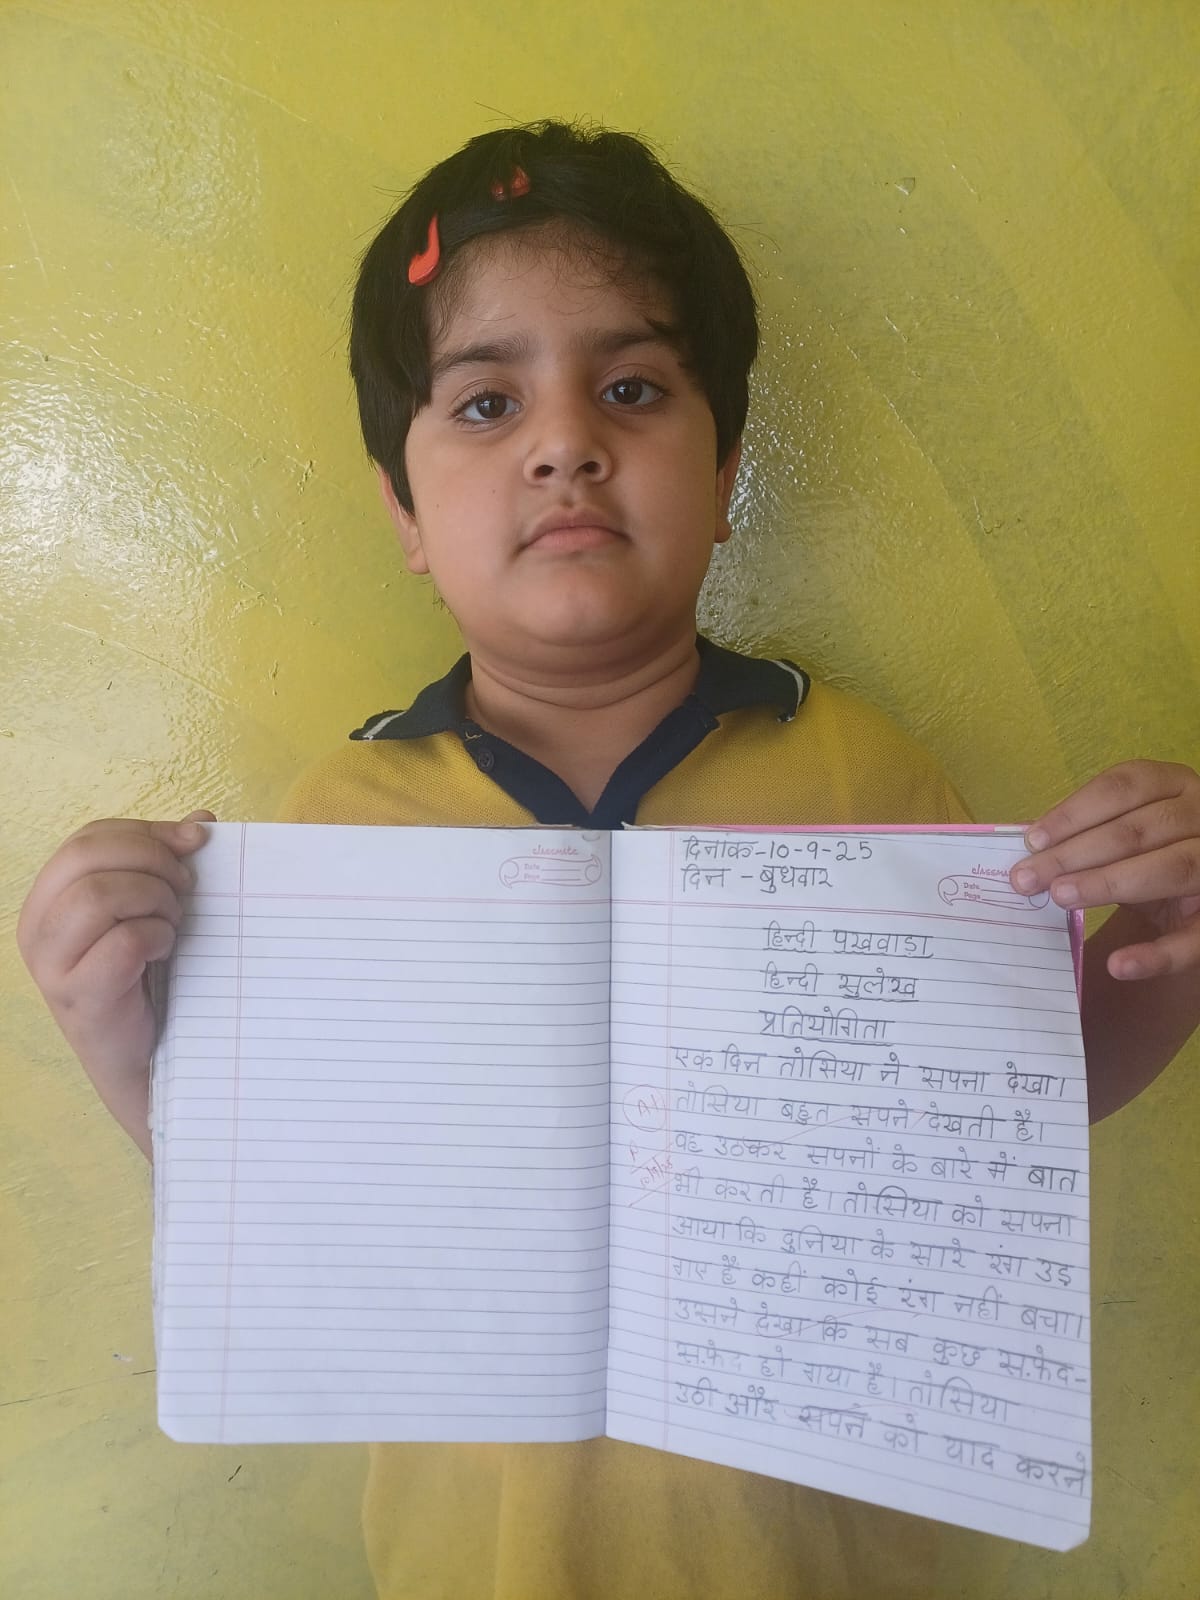 classmate
Date
Page
दिनांक-10-9-25
दिन - बुधवार
classmate
Date
Page
हिन्दी पखवाड़ा
हिन्दी सुलेख
प्रतियोगिता
एक दिन तोसिया ने सपना देखा।
A1
तोसिया बहुत सपने देखती है।
वह उठकर सपनों के बारे में बात
10/9/25
भी करती है। तोसिया को सपना
आया कि दुनिया के सारे रंग उड़
गए हैं कहीं कोई रंग नहीं बचा।
उसने देखा कि सब कुछ सफ़ेद-
सफ़ेद हो गया है। तोसिया
उठी और सपने को याद करने